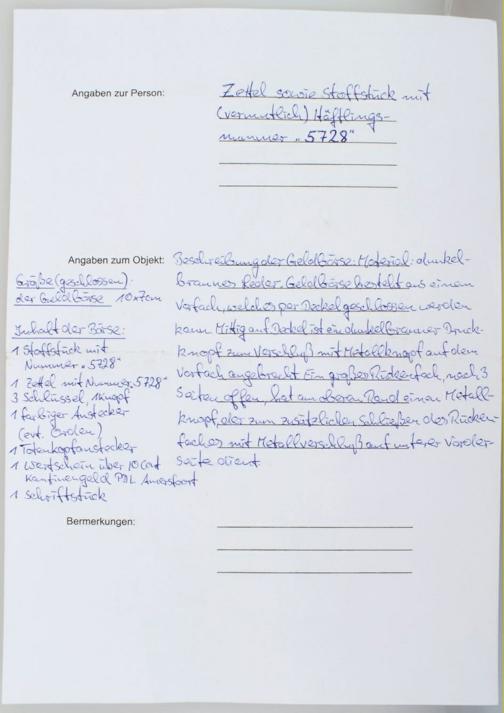 Angaben zur Person:
Zettel sowie Stoffstück mit
(vermutlich) Häftlings-
nummer „5728"
Angaben zum Objekt:
Beschreibung der Geldbörse: Material: dunkel-
braunes Leder. Geldbörse besteht aus einem
Vorfach, welches per Deckel geschlossen werden
kann. Mittig auf Deckel ist ein dunkelbrauner Druck-
knopf zum Verschluß mit Metallknopf auf dem
Vorfach angebracht. Ein großes Rückenfach, nach 3
Seiten offen, hat am oberen Rand einen Metall-
knopf, der zum zusätzlichen schließen des Rücken-
faches mit Metallverschluß auf unterer Vorder-
seite dient
Größe (geschlossen)
der Geldbörse 10x7cm
Inhalt der Börse:
1 Stoffstück mit
Nummer „5728"
1 Zettel mit Nummer „5728"
3 Schlüssel, 1 Knopf
1 farbiger Anstecker
(evt. Orden)
1 Totenkopfanstecker
1 Wertschein über 10 Cent
Kantinengeld PDL Amersfoort
1 Schriftstück
Bemerkungen: